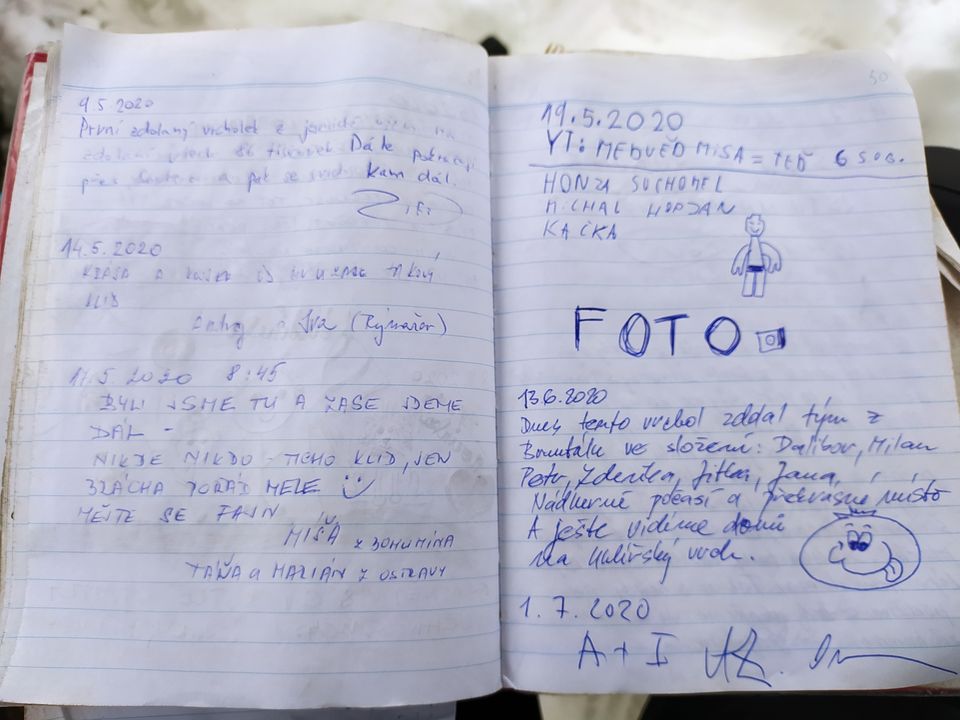 9.5.2020
První zdolaný vrcholek z
zdolání všech Dále pokračuji
přes a pak se kam dál.
14.5.2020
KRÁSA A
KLID
a Iva (Rýmařov)
17.5.2020 8:45
BYLI JSME TU A ZASE JDEME
DÁL -
NIKDE NIKDO - TICHO KLID, JEN
BRÁCHA POŘÁD MELE
MĚJTE SE FAJN
MÍŠA z BOHUMÍNA
TÁŇA a MARIÁN z OSTRAVY
30
19.5.2020
YT: MEDVĚD MISA = TEĎ 6 SOB.
HONZA SUCHOMEL
MICHAL
KAČKA
FOTO
13.6.2020
Dnes tento vrchol zdolal tým z
Bruntálu ve složení: Dalibor, Milan
Petr, Zdeňka, Jitka, Jana,
Nádherné počasí a překrásné místo
A ješte vidíme domů
na Uhlířský vrch.
1.7.2020
A + I